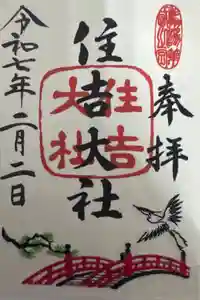 奉拝
住吉大社
住吉
大社
令和七年二月二日